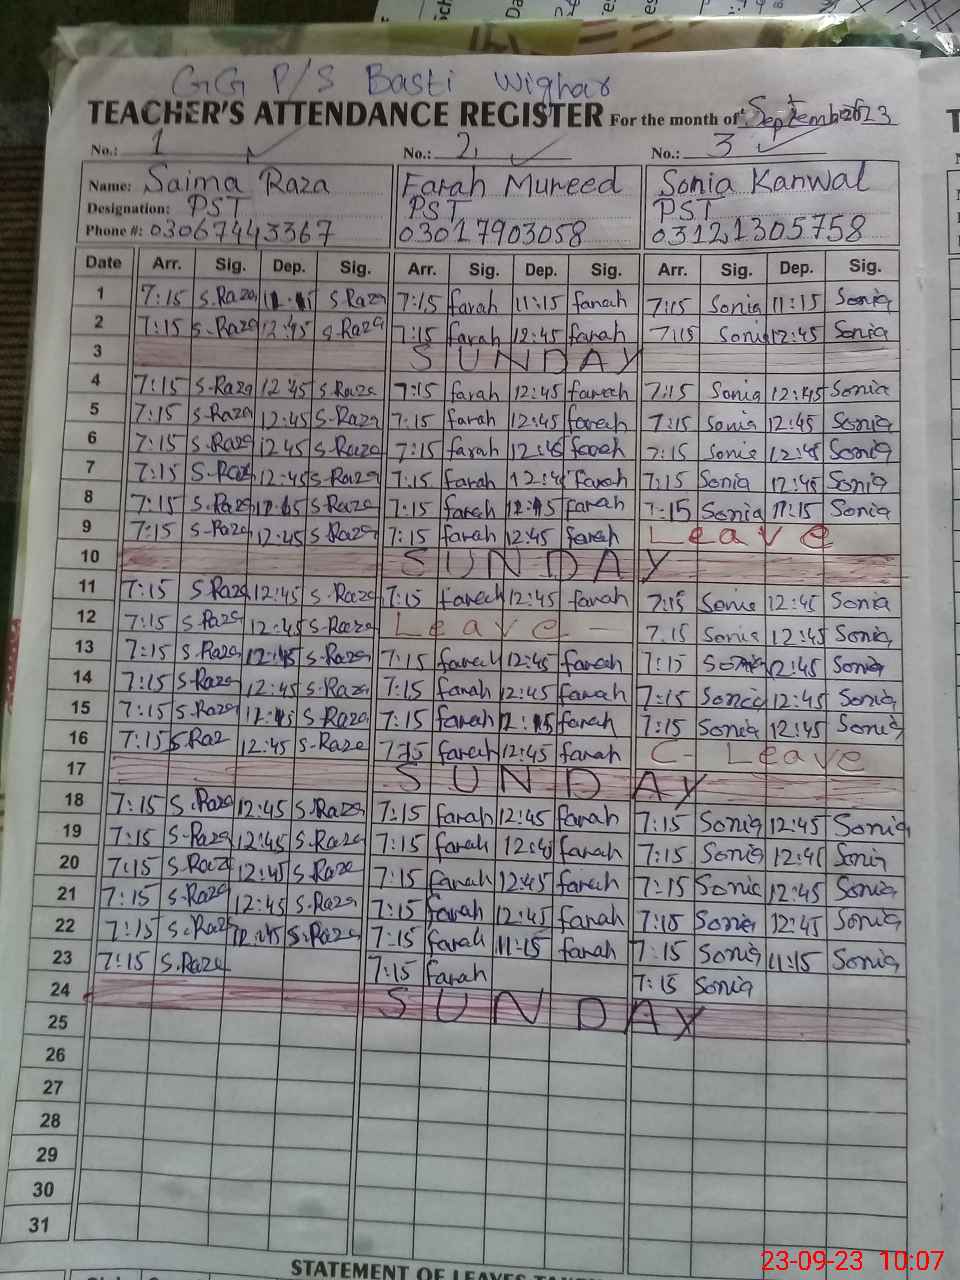 GG P/S Basti Wighar
TEACHER'S ATTENDANCE REGISTER For the month of September 2023
No.: 1 No.: 2 No.: 3
Name: Saima Raza Farah Mureed Sonia Kanwal
Designation: PST PST PST
Phone #: 03067443367 03017903058 03121305758
Date Arr. Sig. Dep. Sig. Arr. Sig. Dep. Sig. Arr. Sig. Dep. Sig.
1 7:15 S.Raza 11:15 S.Raza 7:15 farah 11:15 farah 7:15 Sonia 11:15 Sonia
2 7:15 S-Raza 12:45 S.Raza 7:15 farah 12:45 farah 7:15 Sonia 12:45 Sonia
3 SUNDAY
4 7:15 S-Raza 12:45 S.Raza 7:15 farah 12:45 farah 7:15 Sonia 12:45 Sonia
5 7:15 S-Raza 12:45 S-Raza 7:15 farah 12:45 farah 7:15 Sonia 12:45 Sonia
6 7:15 S-Raza 12:45 S-Raza 7:15 farah 12:45 farah 7:15 Sonia 12:45 Sonia
7 7:15 S-Raza 12:45 S-Raza 7:15 farah 12:45 farah 7:15 Sonia 12:45 Sonia
8 7:15 S.Raza S.Raza 7:15 farah farah 7:15 Sonia 11:15 Sonia
9 7:15 S-Raza 12:45 S.Raza 7:15 farah 12:45 farah Leave
10 SUNDAY
11 7:15 S-Raza 12:45 S.Raza 7:15 farah 12:45 farah 7:15 Sonia 12:45 Sonia
12 7:15 S-Raza 12:45 S-Raza Leave - 7:15 Sonia 12:45 Sonia
13 7:15 S-Raza 12:45 S-Raza 7:15 farah 12:45 farah 7:15 Sonia 12:45 Sonia
14 7:15 S-Raza 12:45 S-Raza 7:15 farah 12:45 farah 7:15 Sonia 12:45 Sonia
15 7:15 S-Raza S-Raza 7:15 farah farah 7:15 Sonia 12:45 Sonia
16 7:15 S.Raz 12:45 S-Raza 7:15 farah 12:45 farah C- Leave
17 SUNDAY
18 7:15 S.Raza 12:45 S.Raza 7:15 farah 12:45 farah 7:15 Sonia 12:45 Sonia
19 7:15 S-Raza 12:45 S.Raza 7:15 farah 12:45 farah 7:15 Sonia 12:45 Sonia
20 7:15 S.Raza 12:45 S-Raza 7:15 farah 12:45 farah 7:15 Sonia 12:45 Sonia
21 7:15 S-Raza 12:45 S.Raza 7:15 farah 12:45 farah 7:15 Sonia 12:45 Sonia
22 7:15 S.Raza S.Raza 7:15 farah 11:15 farah 7:15 Sonia 11:15 Sonia
23 7:15 S.Raza 7:15 farah 7:15 Sonia
24 SUNDAY
25
26
27
28
29
30
31
23-09-23 10:07